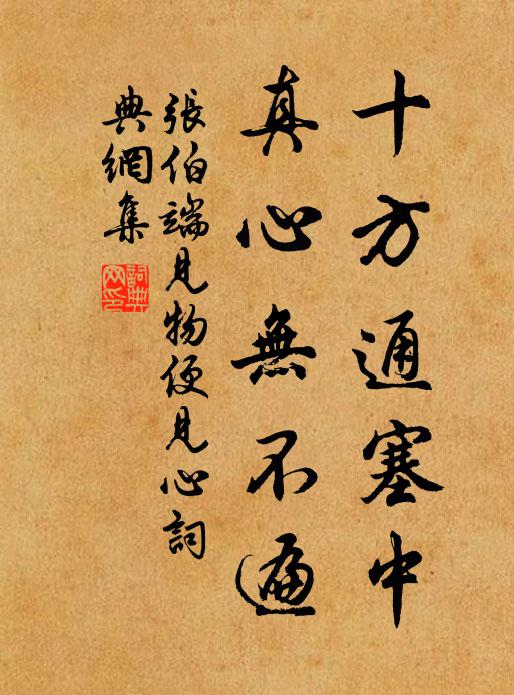 十方通塞中
真心無不遍
張伯端見物便見心詞
典網集
詞典
网印